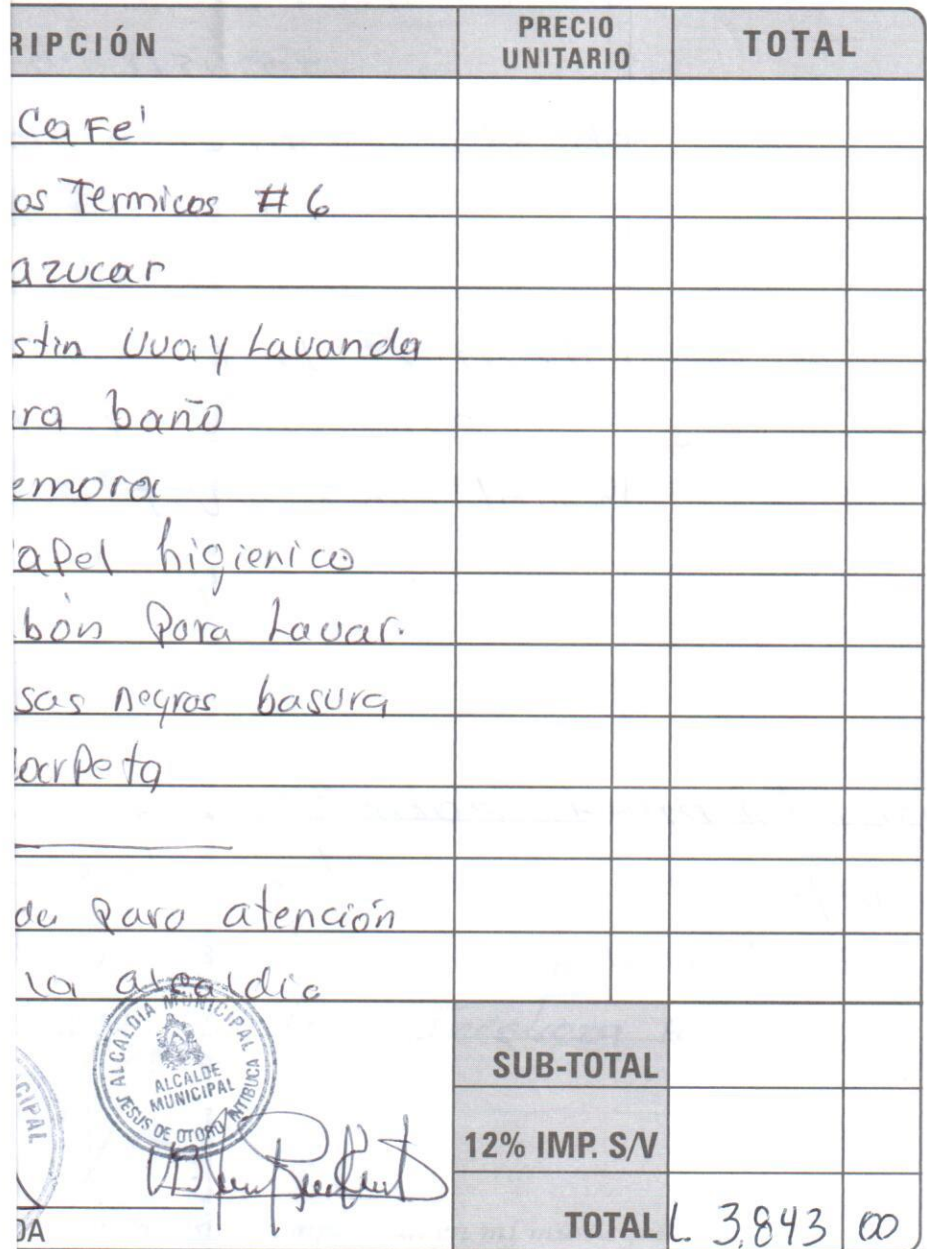 RIPCIÓN PRECIO UNITARIO TOTAL
Café
os Termicos # 6
azucar
stin Uva y Lavanda
ra baño
emora
apel higienico
bón Para Lavar.
sas negras basura
arpeta
da para atención
la alcaldia
ALCALDIA MUNICIPAL
ALCALDE MUNICIPAL
JESUS DE OTORO INTIBUCA
CIPAL
SUB-TOTAL
12% IMP. S/V
DA
TOTAL L. 3,843 00